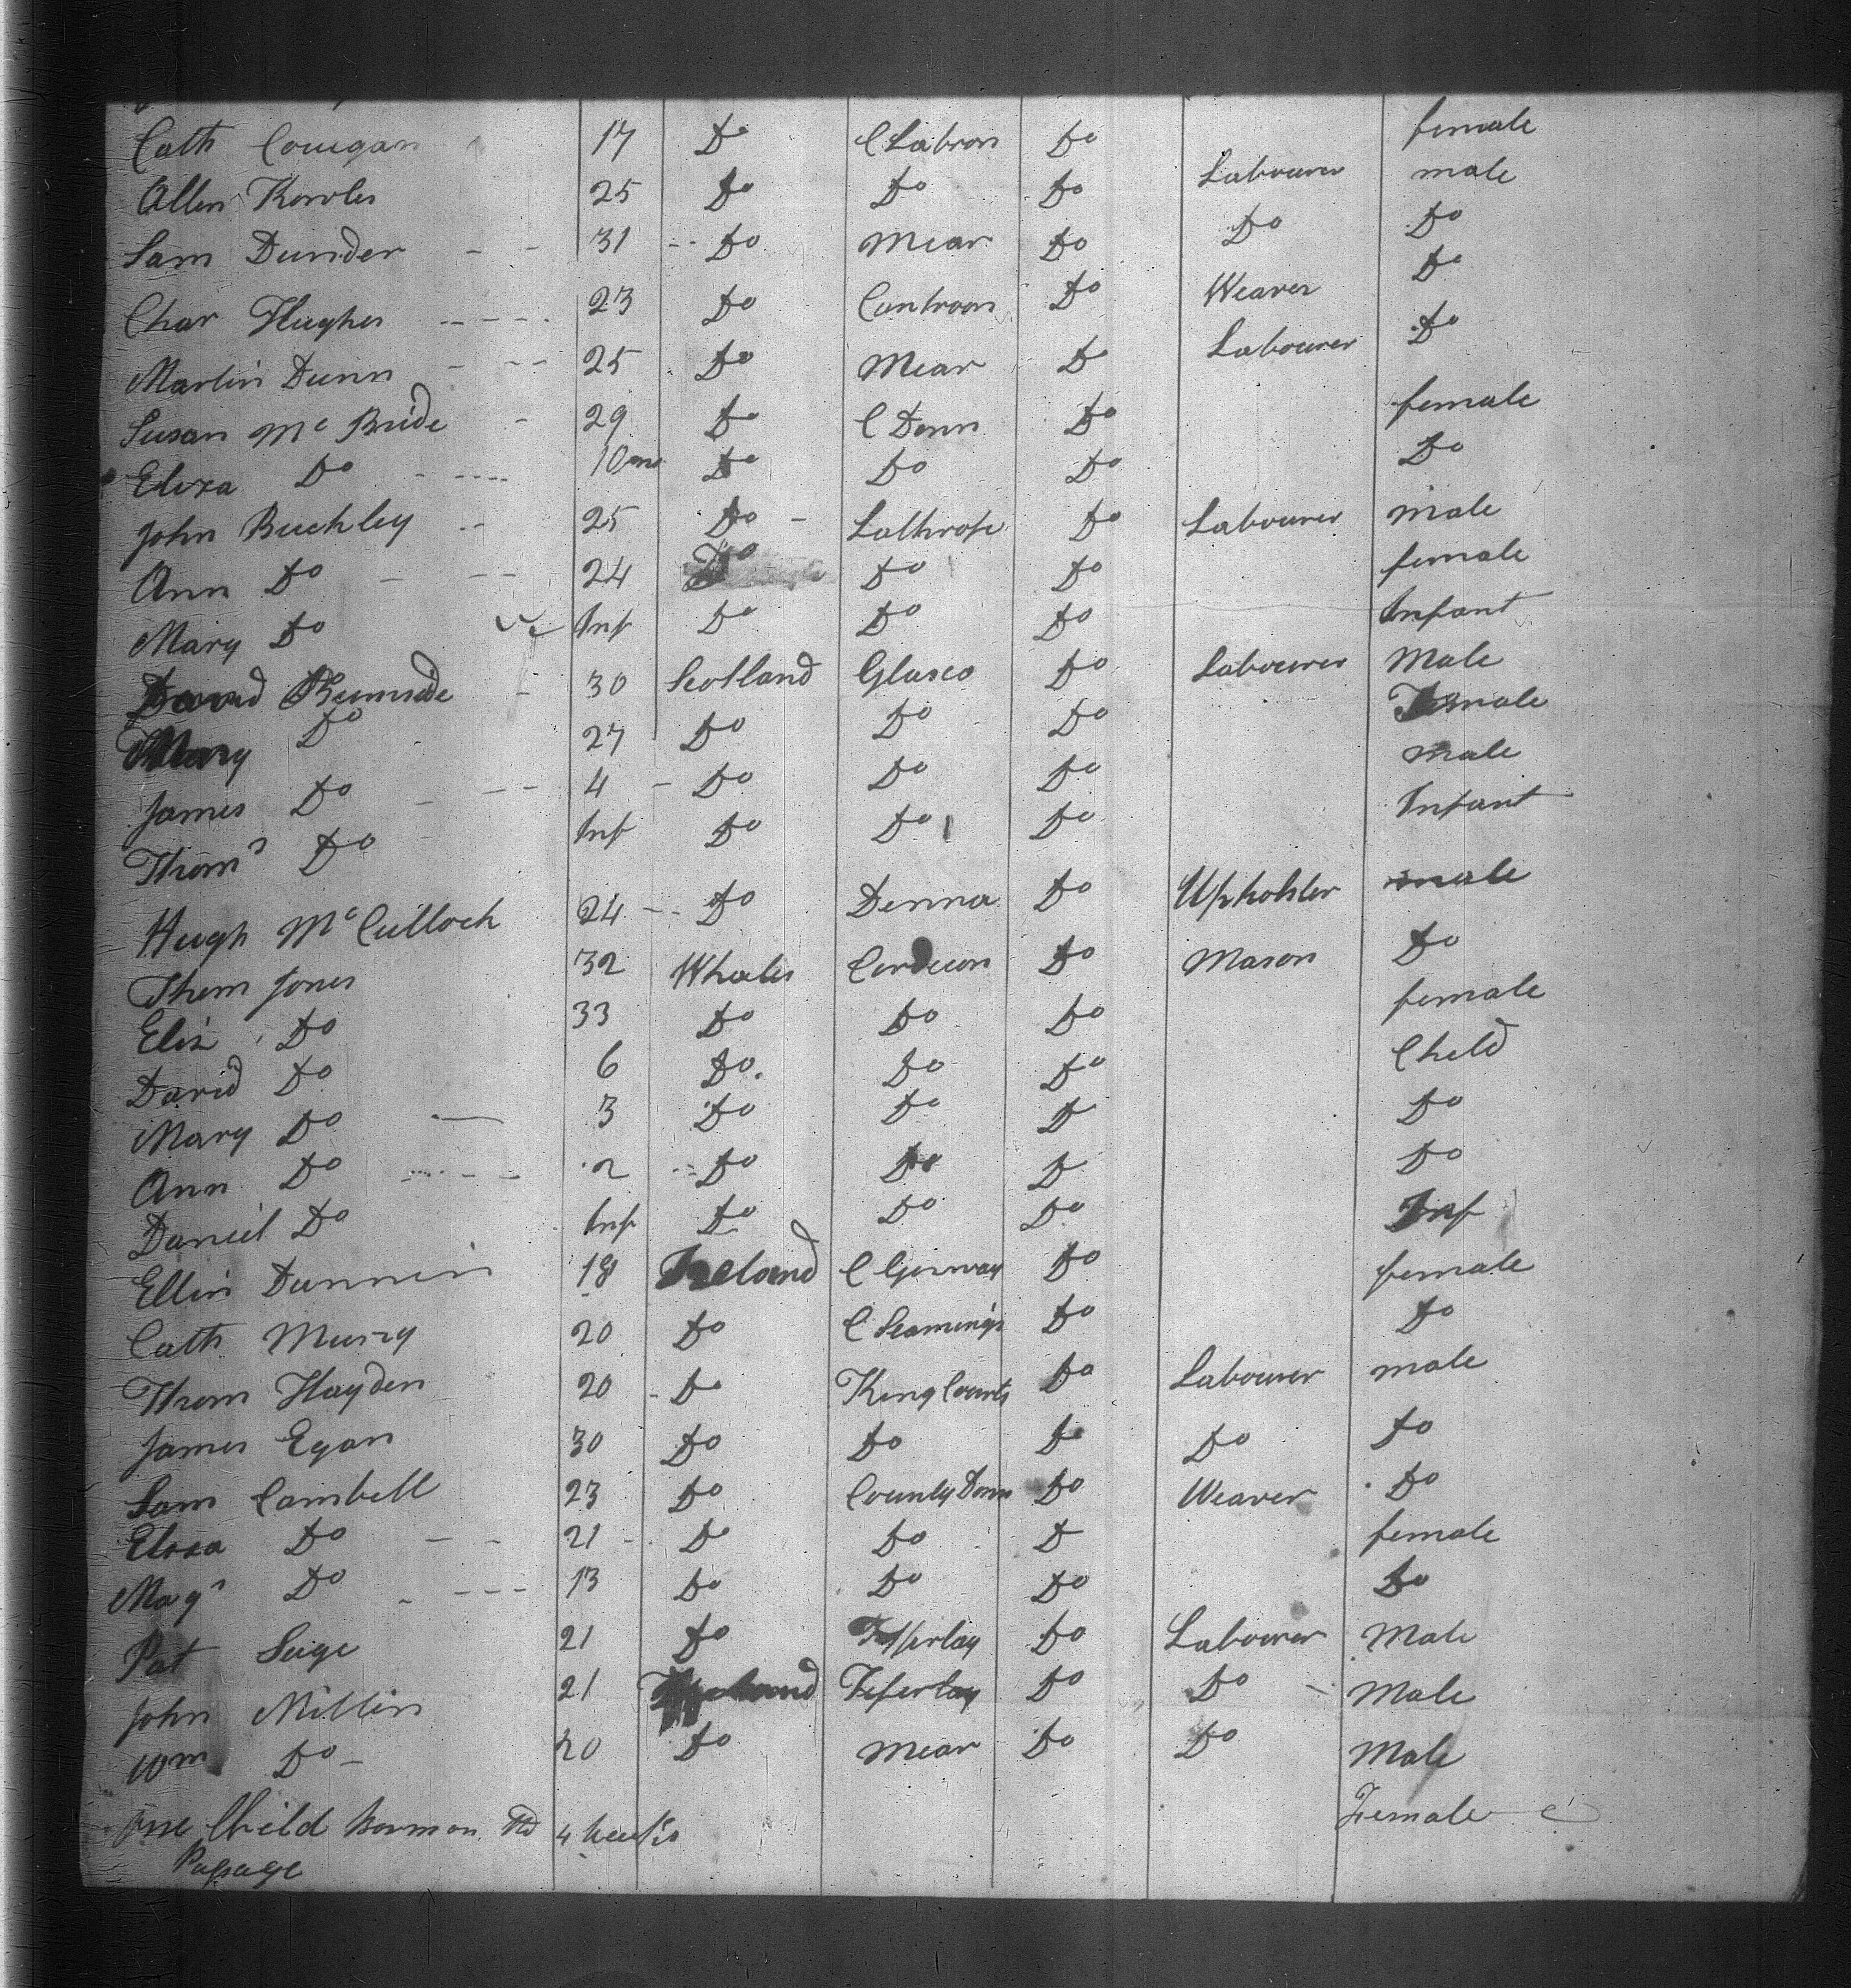 Cath Corrigan 17 Do C Labron Do female
Allen Rowles 25 Do Do Do Labourer male
Sam Dunder 31 Do Mear Do Do Do
Char Hughes 23 Do Do Weaver Do
Martin Dunn 25 Do Mear Do Labourer Do
Susan Mc Bride 29 Do C Donn Do female
Eliza Do 10 mo Do Do Do Do
John Buckley 25 Do Lathrope Do Labourer male
Ann Do 24 Do Do Do female
Mary Do Inf Do Do Do Infant
David Burnside 30 Scotland Glasco Do Labourer Male
Mary Do 27 Do Do Do Female
James Do 4 Do Do Do male
Thoms Do Inf Do Do Do Infant
Hugh McCulloch 24 Do Denna Do Upholster male
Thom Jones 32 Whales Do Mason Do
Eliz Do 33 Do Do Do female
David Do 6 Do Do Do Child
Mary Do 3 Do Do Do Do
Ann Do 2 Do Do Do Do
Daniel Do Inf Do Do Do Inf
Ellin Dunnin 18 Ireland C Do female
Cath Murry 20 Do C Do Do
Thom Hayden 20 Do King County Do Labourer male
James Egan 30 Do Do Do Do Do
Sam Cambell 23 Do County Donn Do Weaver Do
Eliza Do 21 Do Do Do female
Magt Do 13 Do Do Do Do
Pat Seige 21 Do Tipperlay Do Labourer Male
John Millin 21 Tiperlay Do Do Male
Wm Do 20 Do Mear Do Do Male
One Child Born on The 4 weeks Female
Passage